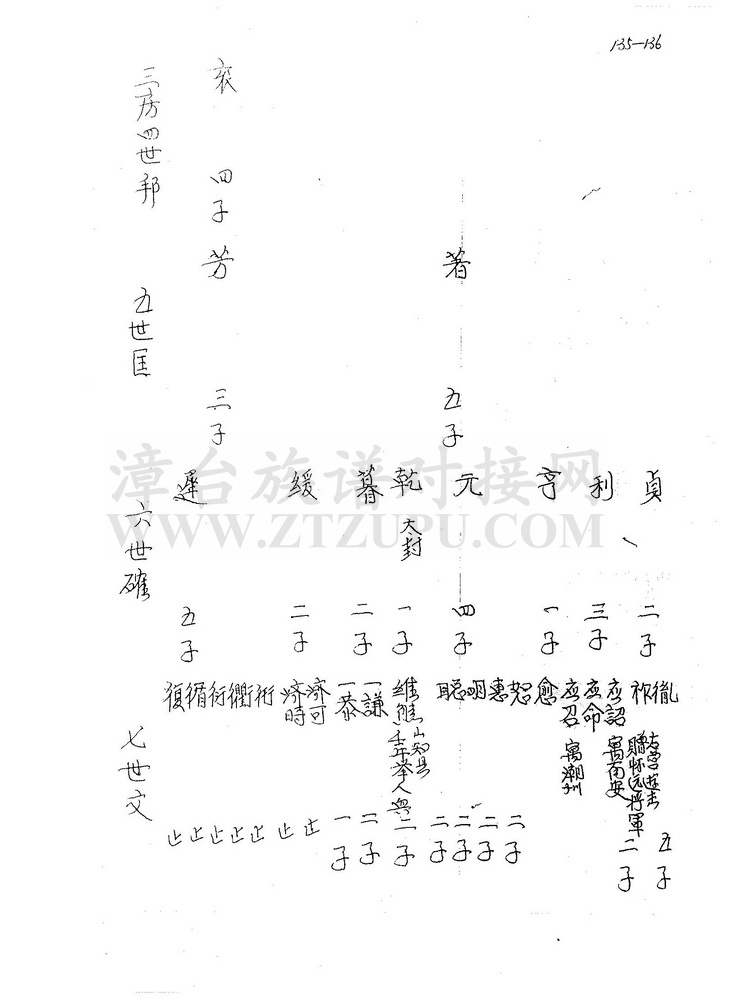 135—136
三房四世邦
五世匡
六世確
七世文
衮
四子
芳
著
三子
五子
遲
緩
暮
乾
大封
元
亨
利
貞
五子
二子
二子
一子
四子
一子
三子
二子
復
循
衍
衢
衎
濟時
濟可
一恭
一謙
維熊
山知县
壬午举人
聪
明
惠
恕
愈
应召
寓潮州
应命
应詔
寓南安
祁
胤
贈怀远将軍
止
止
止
止
止
止
止
一子
二子
二子
二子
二子
二子
二子
二子
五子
漳台族谱对接网
WWW.ZTZUPU.COM